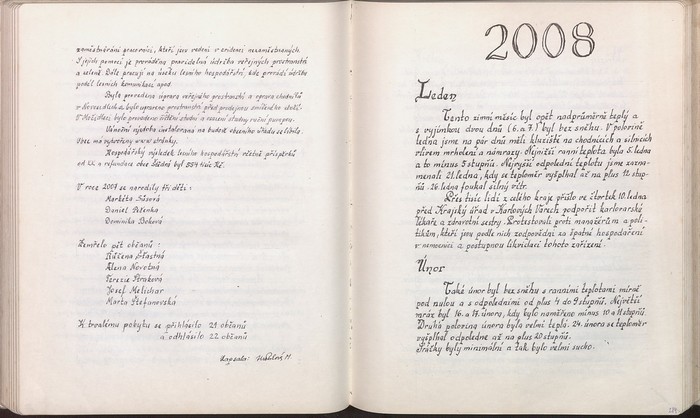 zaměstnáni pracovníci, kteří jsou vedeni v evidenci nezaměstnaných.
S jejich pomocí je prováděna pravidelná údržba veřejných prostranství
a zeleně. Dále pracují na úseku lesního hospodářství, kde provádí údržbu
podél lesních komunikací apod.
Byla provedena úprava veřejného prostranství a oprava chodníků
v upraveno prostranství před prodejnou smíšeného zboží.
V bylo provedeno čištění studní a osazení studny ruční pumpou.
Vánoční výzdoba instalována na budově obecního úřadu se líbila.
Obec má vytvořeny www stránky.
Hospodářský výsledek lesního hospodářství včetně příspěvků
od a refundace obce činil 554 tisíc Kč.
V roce 2007 se narodily tři děti:
Markéta
Daniel
Dominika Boková
Zemřelo pět občanů:
Růžena Šťastná
Alena Novotná
Terezie Straková
Josef Melichar
Marta Štefanovská
K trvalému pobytu se přihlásilo 21 občanů
a odhlásilo 22 občanů
Zapsala:
2008
Leden
Tento zimní měsíc byl opět nadprůměrně teplý a
s vyjímkou dvou dnů (6. a 7.) byl bez sněhu. V polovině
ledna jsme na pár dnů měli kluziště na chodnících a silnicích
vlivem mrholení a námrazy. Nejnižší ranní teplota byla 5. ledna
a to minus 5 stupňů. Nejvyšší odpolední teplotu jsme zazna-
menali 21. ledna, kdy se teploměr vyšplhal až na plus 12 stup-
ňů. 26. ledna foukal silný vítr.
Přes tisíc lidí z celého kraje přišlo ve čtvrtek 10. ledna
před Krajský úřad v Karlových Varech podpořit karlovarské
lékaře a zdravotní sestry. Protestovali proti manažerům a poli-
tikům, kteří jsou podle nich zodpovědni za špatné hospodaření
v nemocnici a postupnou likvidaci tohoto zařízení.
Únor
Také únor byl bez sněhu s ranními teplotami mírně
pod nulou a s odpoledními od plus 4 do 9 stupňů. Největší
mráz byl 16. a 17. února, kdy bylo naměřeno minus 10 a 11 stupňů.
Druhá polovina února byla velmi teplá. 24. února se teploměr
vyšplhal odpoledne až na plus 20 stupňů.
Srážky byly minimální a tak bylo velmi sucho.